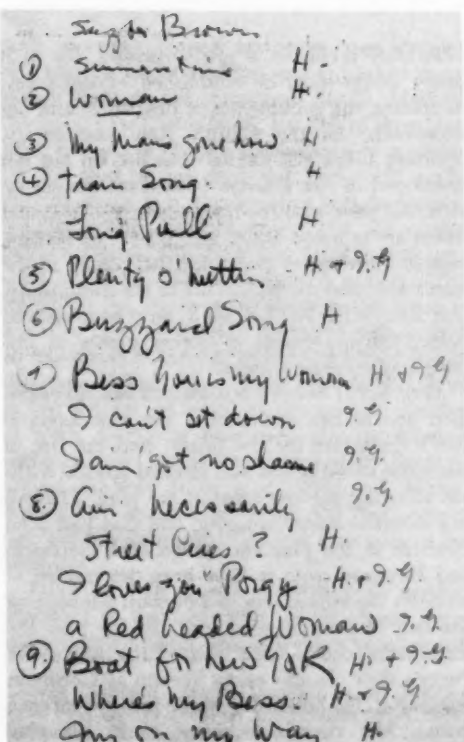 Brown
① Summertime H.
② Woman H.
③ My mans gone now H
④ train Song H
Long Pull H
⑤ Plenty o' nuttin H. + I.G
⑥ Buzzard Song H
⑦ Bess you is my woman H + I.G
I can't set down I.G
I ain' got no shame I.G.
⑧ Ain necessarily I.G.
Street Cries? H.
I loves you Porgy H. + I.G.
a Red headed Woman I.G.
⑨ Boat for new York H. + I.G.
Where's my Bess. H. + I.G
I'm on my Way H.